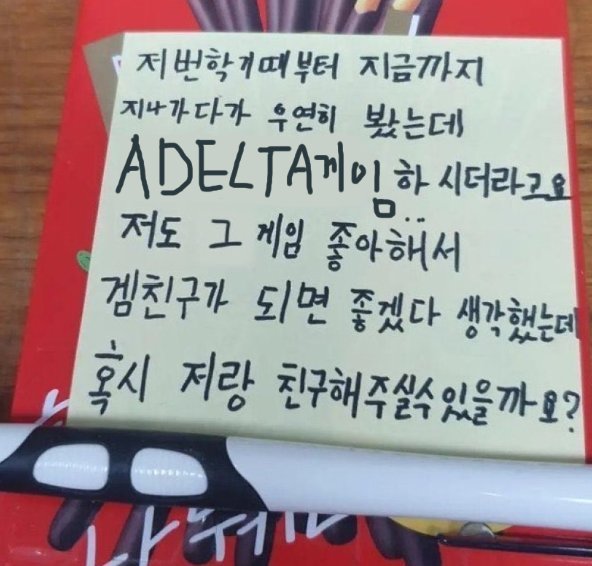 저번학기때부터 지금까지
지나가다가 우연히 봤는데
ADELTA게임하시더라고요
저도 그 게임 좋아해서
겜친구가 되면 좋겠다 생각했는데
혹시 저랑 친구해주실수있을까요?